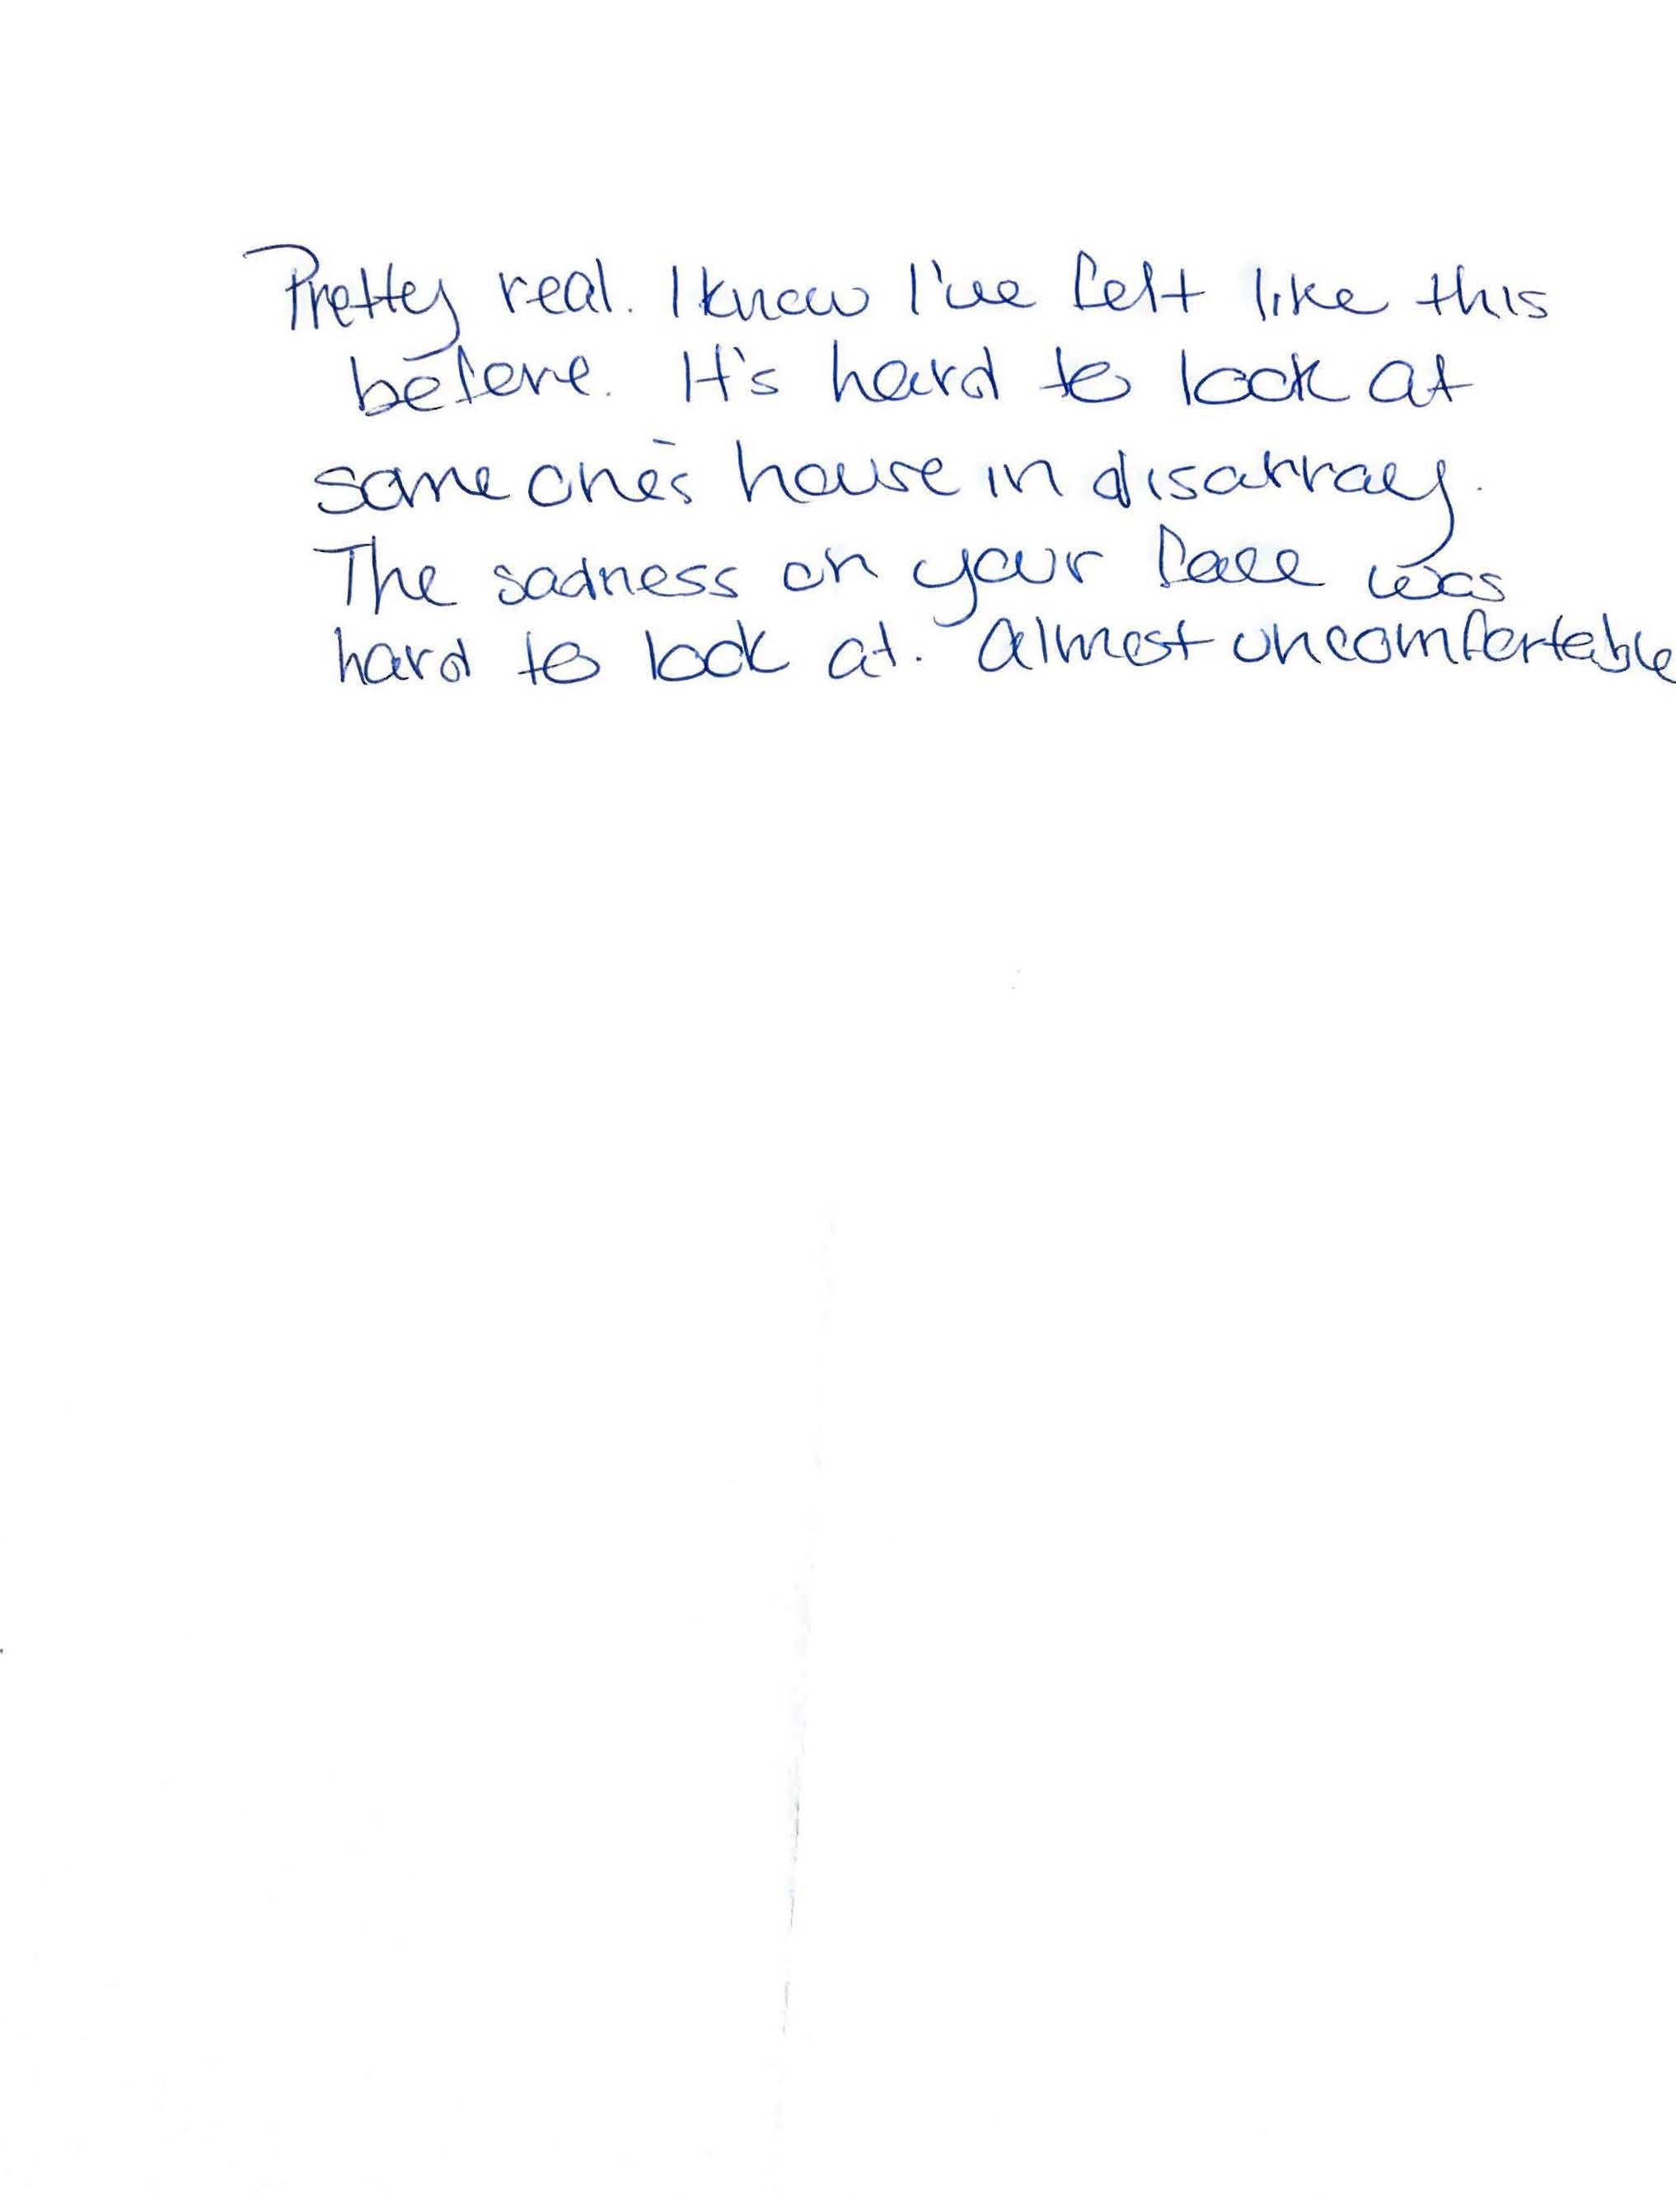 Pretty real. I know I've felt like this
before. It's hard to look at
some one's house in disarray.
The sadness on your face was
hard to look at. Almost uncomfortable